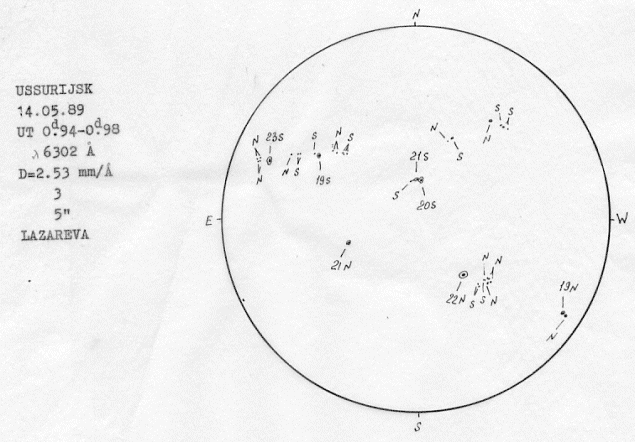 USSURIJSK
14.05.89
UT 0ᵈ.94-0ᵈ.98
λ 6302 Å
D=2.53 mm/Å
3
5"
LAZAREVA
N
S S
N N
S N S
N 23S
S
21S
N N S 19S
S 20S
E W
21N
N N
22N S S N
19N
N
S